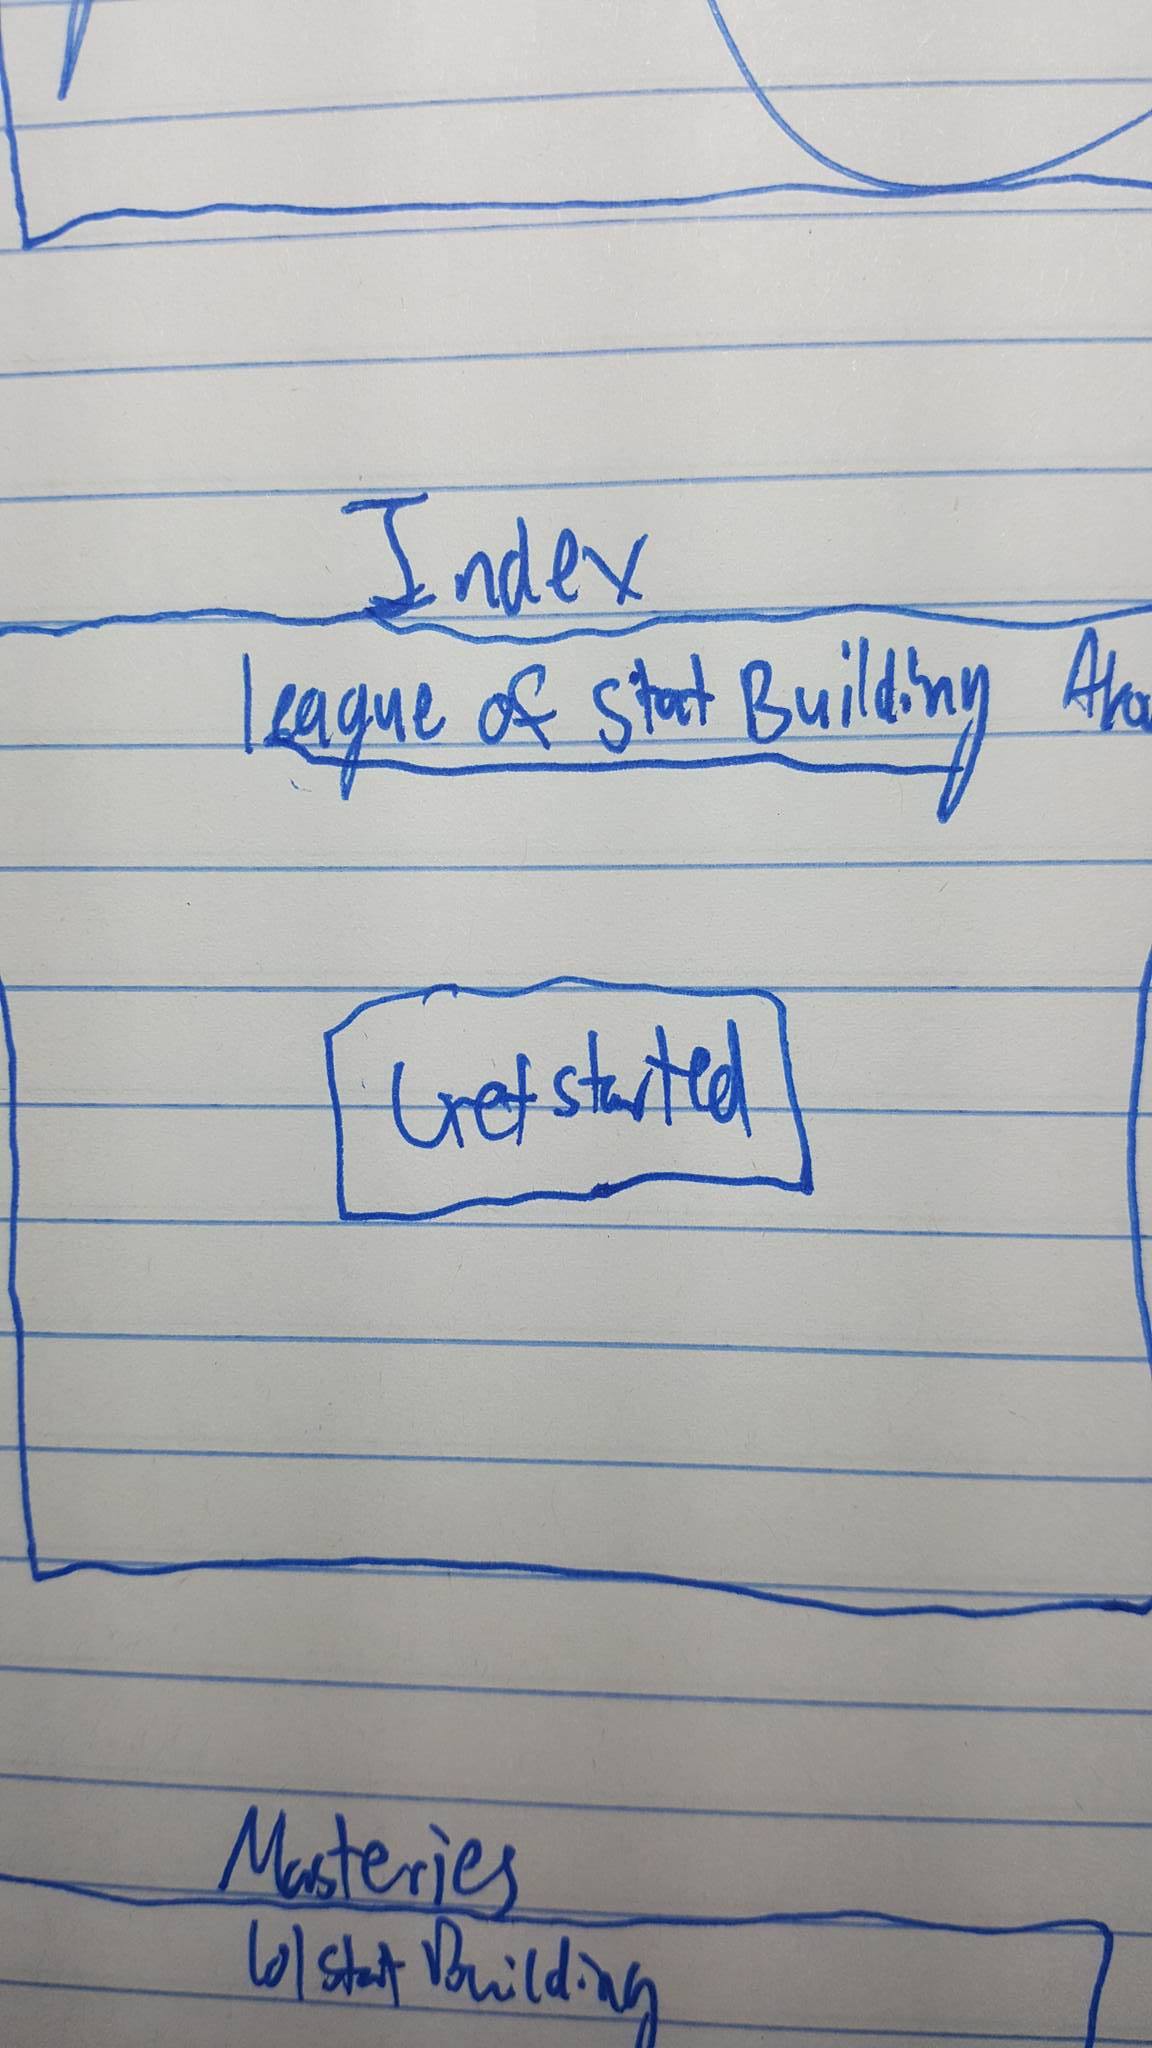 Index
League of Stat Building
Get started
Masteries
lol stat Building